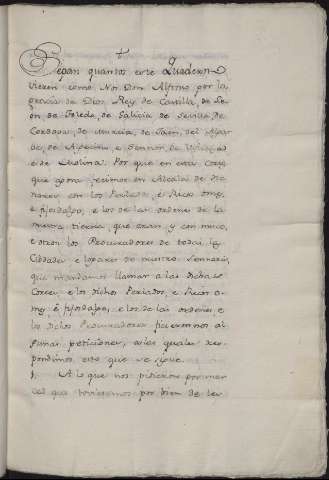 Sepan quantos este Quaderno
vieren como Nos Don Alfonso por la
gracia de Dios, Rey de Castilla, de Le
on de Toledo, de Galicia de Sevilla de
Cordova, de Murcia, de Jaen, del Algar
be, de Algecira, e Sennor de
è de Molina: Por que en estas Cortes
que agora fecimos en Alcalá de He
nares con los Perlados, è Ricos omes,
e fijosdalgo, e los de las ordenes de la
nuestra tierra, que eran y con nusco,
e otrosi los Procuradores de todas las
Cibdades e logares de nuestro Sennorio,
que mandamos llamar a las dichas
Cortes, e los dichos Perlados, e Ricos o
mes è fijosdalgo, e los de las ordenes, e
los dichos Procuradores ficieronnos al
gunas peticiones, a las quales res
pondimos esto que se sigue.
1. A lo que nos pidieron por mer
ced que toviesemos por bien de les